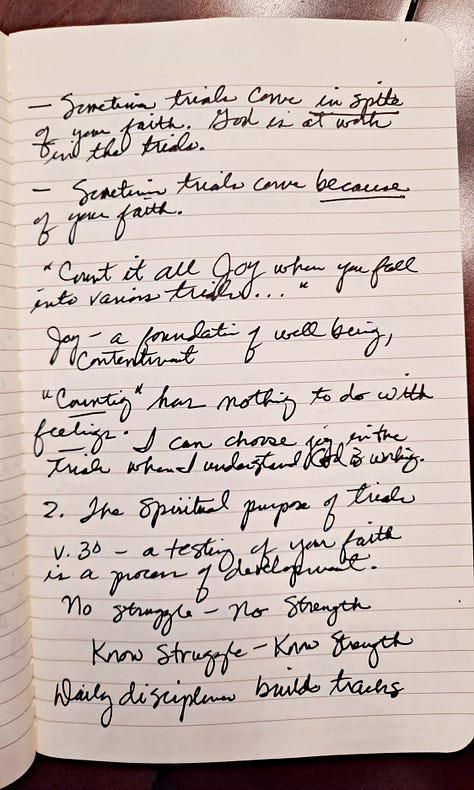 - Sometimes trials come in spite
of your faith. God is at work
in the trials.
- Sometimes trials come because
of your faith.
"Count it all Joy when you fall
into various trials..."
Joy - a foundation of well being,
contentment
"Counting" has nothing to do with
feelings. I can choose joy in the
trials when I understand God is working.
2. The Spiritual purpose of trials
v. 3 - a testing of your faith
is a process of development.
No struggle - No Strength
Know Struggle - Know Strength
Daily disciplines builds tracks